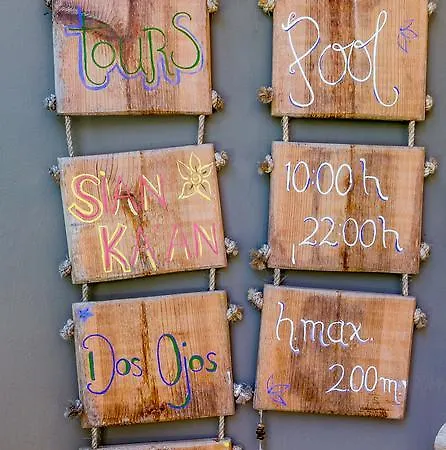 tours
Sian
Ka'an
Dos Ojos
Pool
10:00 h
22:00 h
h max.
2.00 m